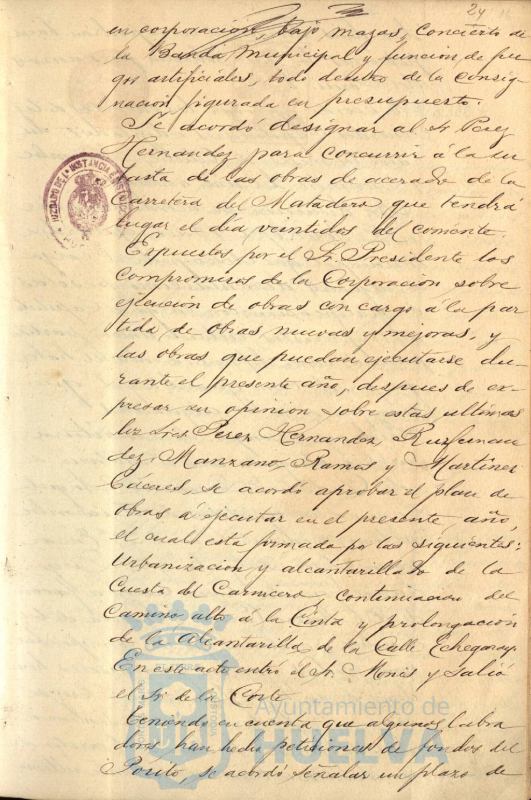 24
en corporación, bajo mazas, concierto de
la Banda Municipal y función de fue
gos artificiales, todo dentro de la consig
nación figurada en presupuesto.
Se acordó designar al Sr. Perez
Hernandez para concurrir á la su
basta de las obras de acerado de la
Carretera del Matadero que tendrá
lugar el día veintidos del corriente.
Expuestos por el Sr. Presidente los
compromisos de la Corporación sobre
ejecución de obras con cargo á la par
tida de obras nuevas y mejoras, y
las obras que puedan ejecutarse du
rante el presente año, despues de ex
presar su opinion sobre estas ultimas
los Sres. Perez Hernandez, Ruifernan
dez, Manzano, Ramos y Martinez
Caceres, se acordó aprobar el plan de
obras á ejecutar en el presente año,
el cual está formado por las siguientes:
Urbanización y alcantarillado de la
Cuesta del Carnicero, continuación del
Camino alto á la Cinta y prolongación
de la Alcantarilla de la Calle Echegaray.
En este acto entró el Sr. Monis y salió
el Sr. de la Corte.
Teniendo en cuenta que algunos labra
dores han hecho peticiones de fondos del
Posito, se acordó señalar un plazo de
JUZGADO DE 1ª INSTANCIA
Ayuntamiento de
HUELVA